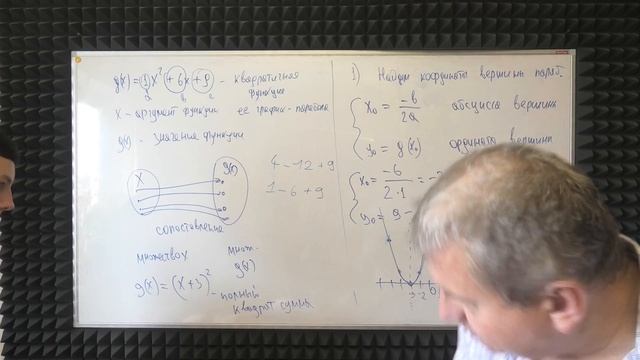 g(x) = (1)x² (+6x +9) - квадратичная
функция
a b c
x - аргумент функции её график - парабола
g(x) - значение функции
X g(x)
4 - 12 + 9
1 - 6 + 9
сопоставление
множество X множ-
g(x)
g(x) = (x + 3)² - полный
квадрат суммы
1) Найдем координаты вершины параб.
x₀ = -b/2a абсцисса вершины
y₀ = g(x₀) ордината вершины
x₀ = -6/2·1 =
y₀ = 9 -
-3 -2 0